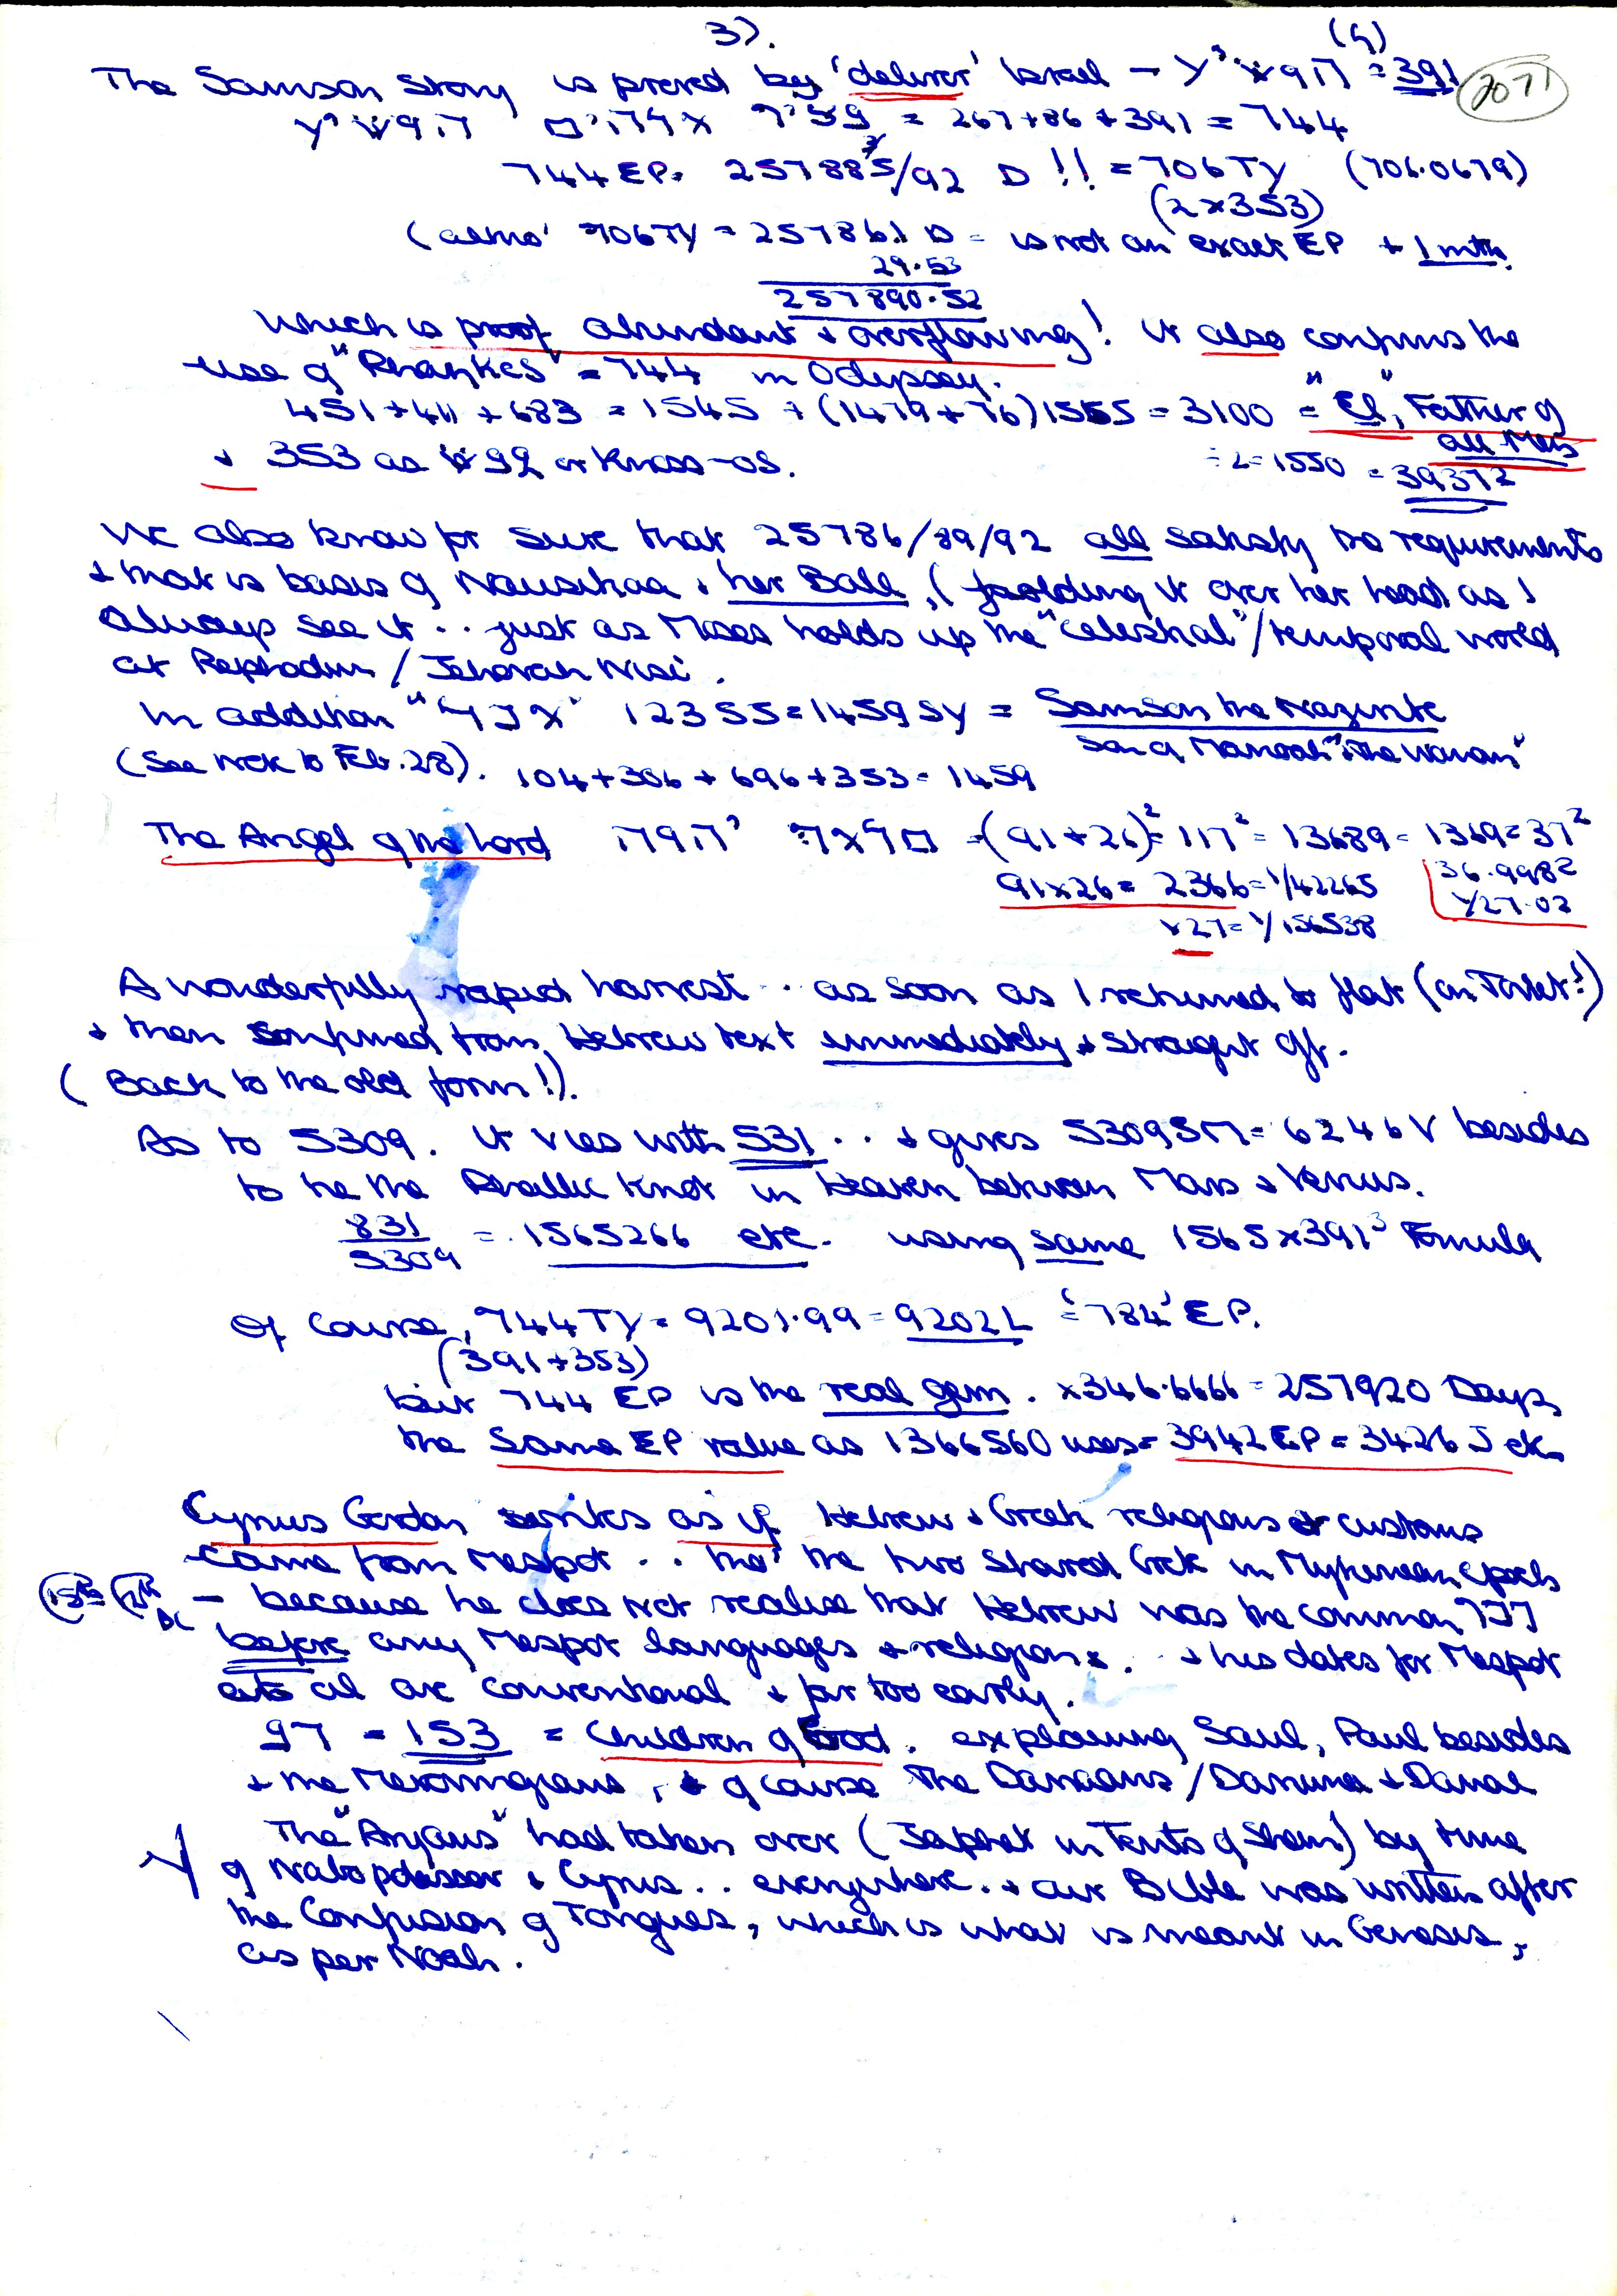 3).
(4)
The Samson Story is proved by 'deliver' Israel - = 391
2071
= 267+86+391 = 744
744 EP. 257885/92 D!! = 706TY (706.0679)
(2x353)
706TY = 257861 D = is not an exact EP + 1 mth.
29.53
257890.52
which is proof abundant + overflowing! it also confirms the
use of "Phaykes" = 744 in Odyssey.
451+411+683 = 1545 + (1479+76)1555 = 3100 = "El", Father of
all Men
+ 353 as or Knoss-os.
÷2=1550 = 39372
We also know for sure that 25786/89/92 all satisfy the requirements
+ that is basis of Nausikaa + her Ball, (holding it over her head as I
always see it .. just as Moses holds up the "celestial"/temporal world
at Rephidim / Jehovah Nisi.
In addition 12355=1459SY = Samson the Nazirite
son of Manoah "the woman"
(See note to Feb. 28). 104+306+696+353=1459
The Angel of the Lord (91+26)²= 117²= 13689= 1369=37²
91x26= 2366=1/42265
36.9982
1/27.02
x27=1/156538
A wonderfully rapid harvest .. as soon as I returned to flat (on Toilet!)
+ then confirmed from Hebrew text immediately + straight off.
(Back to the old form!).
As to 5309. It vies with 531 .. + gives 5309SM= 6246V besides
to be the Phallic Knot in Heaven between Mars + Venus.
831/5309 = .1565266 etc. using same 1565x391³ Formula
Of course, 744TY= 9201.99=9202L = '784' EP.
(391+353)
but 744 EP is the real gem. x346.6666=257920 Days,
the Same EP value as 1366560 uses= 3942EP=3426J etc.
Cyrus Gordon writes as if Hebrew + Greek religions or customs
came from Mespot .. tho' the two shared Greek in Mykenean epoch
15th 12th BC
- because he does not realise that Hebrew was the common
before any Mespot languages + religions. + his dates for Mespot
et al are conventional + far too early.
97 = 153 = Children of God. explaining Saul, Paul besides
+ the Merovingians, + of course the Danaans/Danuna + Danal
The "Aryans" had taken over (Japhet in Tents of Shem) by time
of Nabopolassar + Cyrus .. everywhere .. + our Bible was written after
the Confusion of Tongues, which is what is meant in Genesis,
as per Noah.